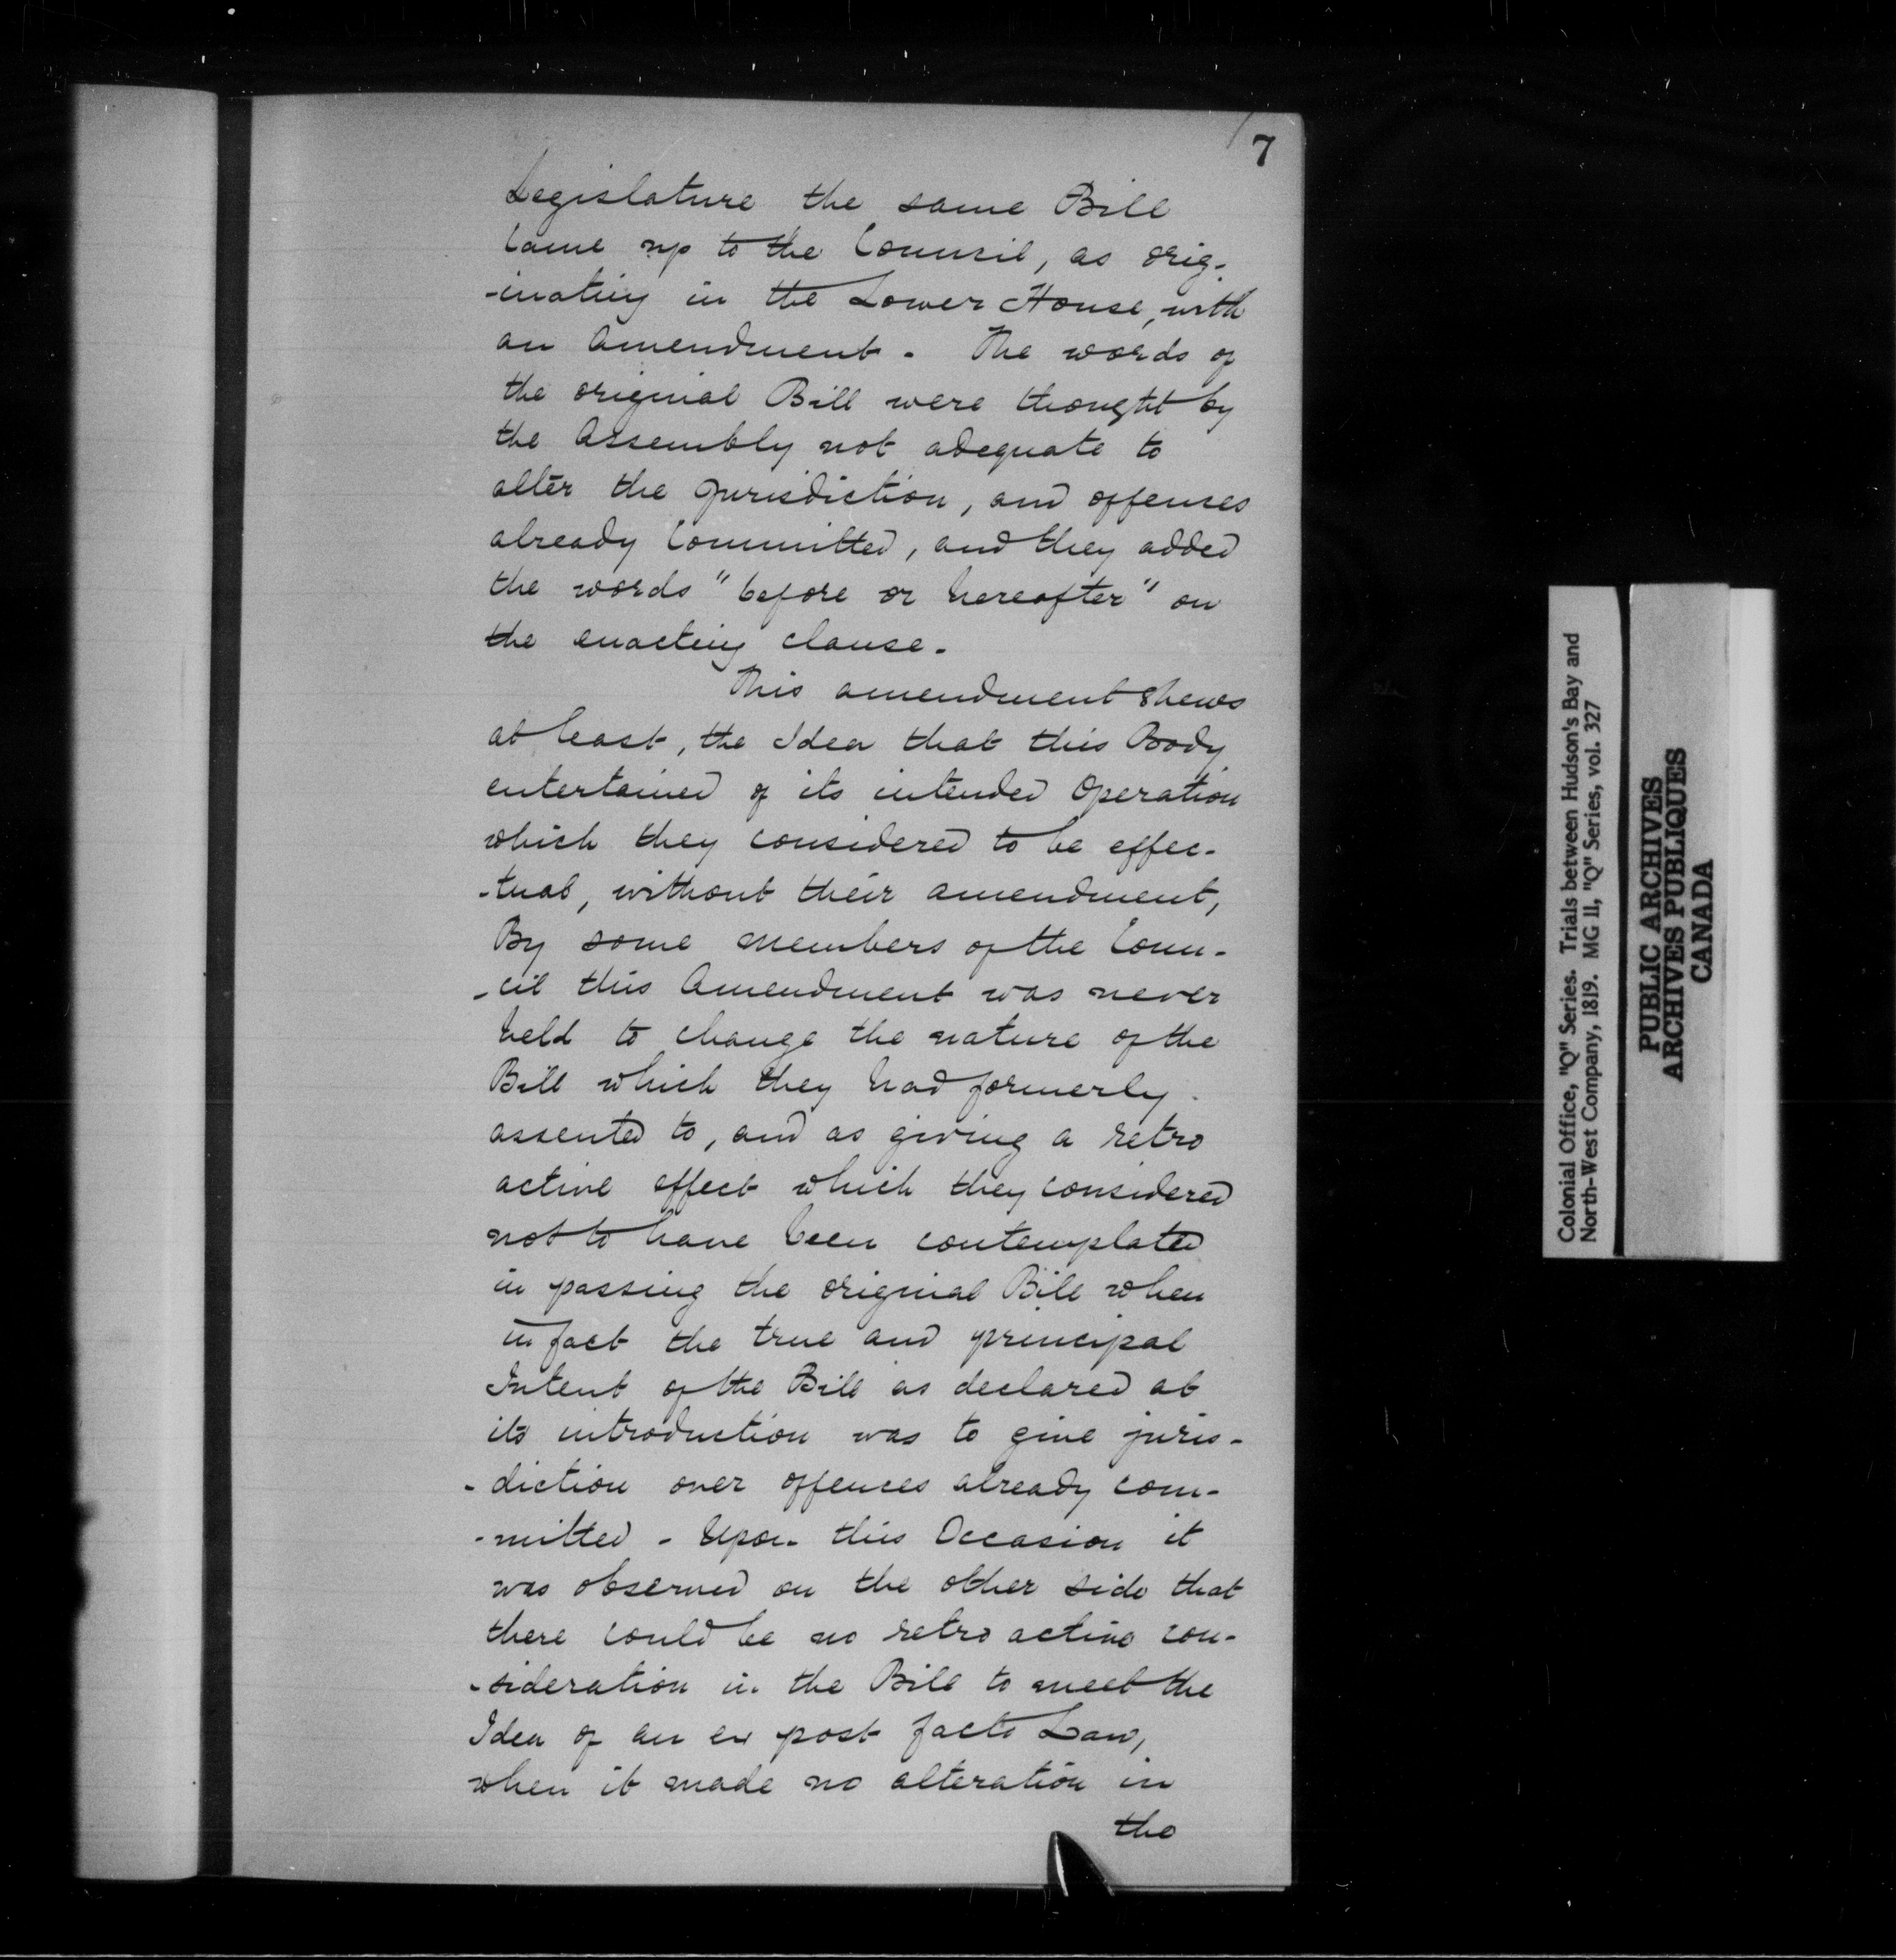 7
Legislature the same Bill
came up to the Council, as orig-
-inating in the Lower House, with
an Amendment. The words of
the original Bill were thought by
the Assembly not adequate to
alter the jurisdiction, and offenses
already Committed, and they added
the words "before or hereafter" on
the enacting clause.
This amendment shews
at least, the Idea that this Body
entertained of its intended Operation
which they considered to be effec-
-tual, without their amendment,
By some members of the Coun-
-cil this Amendment was never
held to change the nature of the
Bill which they had formerly
assented to, and as giving a retro
active effect which they considered
not to have been contemplated
in passing the original Bill when
in fact the true and principal
Intent of the Bill as declared at
its introduction was to give juris-
-diction over offences already com-
-mitted - Upon this Occasion it
was observed on the other side that
there could be no retro active con-
-sideration in the Bill to meet the
Idea of an ex post facto Law,
when it made no alteration in
the
Colonial Office, "Q" Series. Trials between Hudson's Bay and
North-West Company, 1819. MG 11, "Q" Series, vol. 327
PUBLIC ARCHIVES
ARCHIVES PUBLIQUES
CANADA